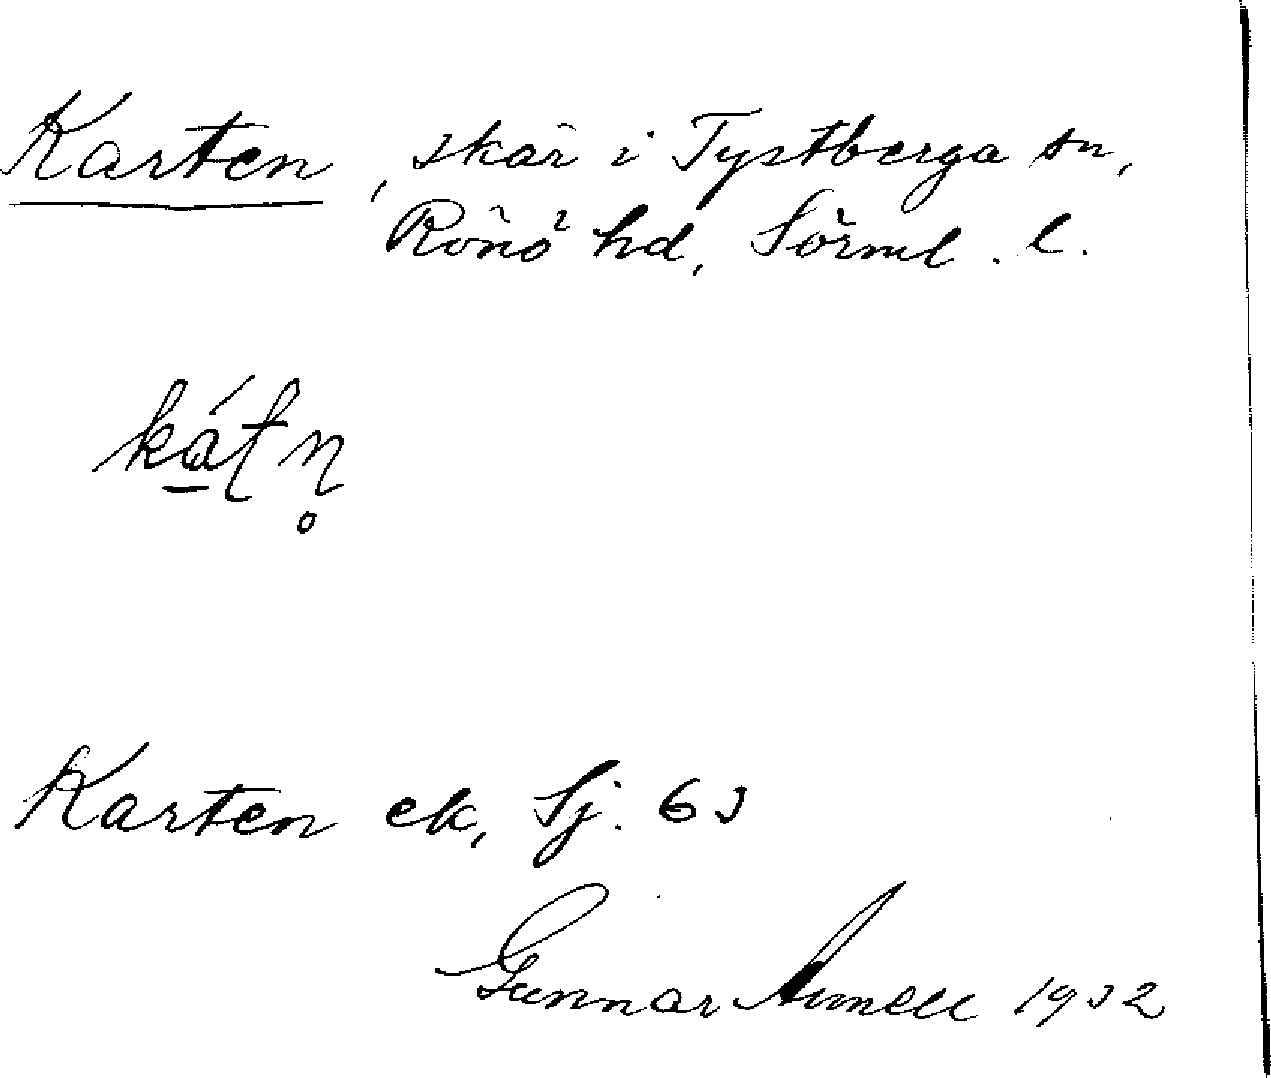 Karten, skär i Tystberga sn,
Rönö hd, Sörml. l.
ká̱ʈɳ̥
Karten ek, Sj. 63
Gunnar Arnell 1932